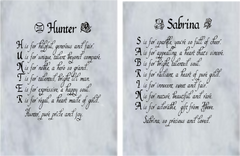 Hunter
H is for helpful, generous and fair.
U is for unique, talent beyond compare.
N is for noble, a hero so grand.
T is for talented, bright
E is for expressive, a happy soul.
R is for right, a heart made of gold.
Hunter, pure pride and joy.
Sabrina
S is for sparkle, you're so full of cheer.
A is for appealing, a heart that's sincere.
B is for Bright, talented soul.
R is for radiant, a heart of pure gold.
I is for innocent, sweet and fair.
N is for natural, beauty and rare.
A is for adorable, gift from Above.
Sabrina, so precious and loved.